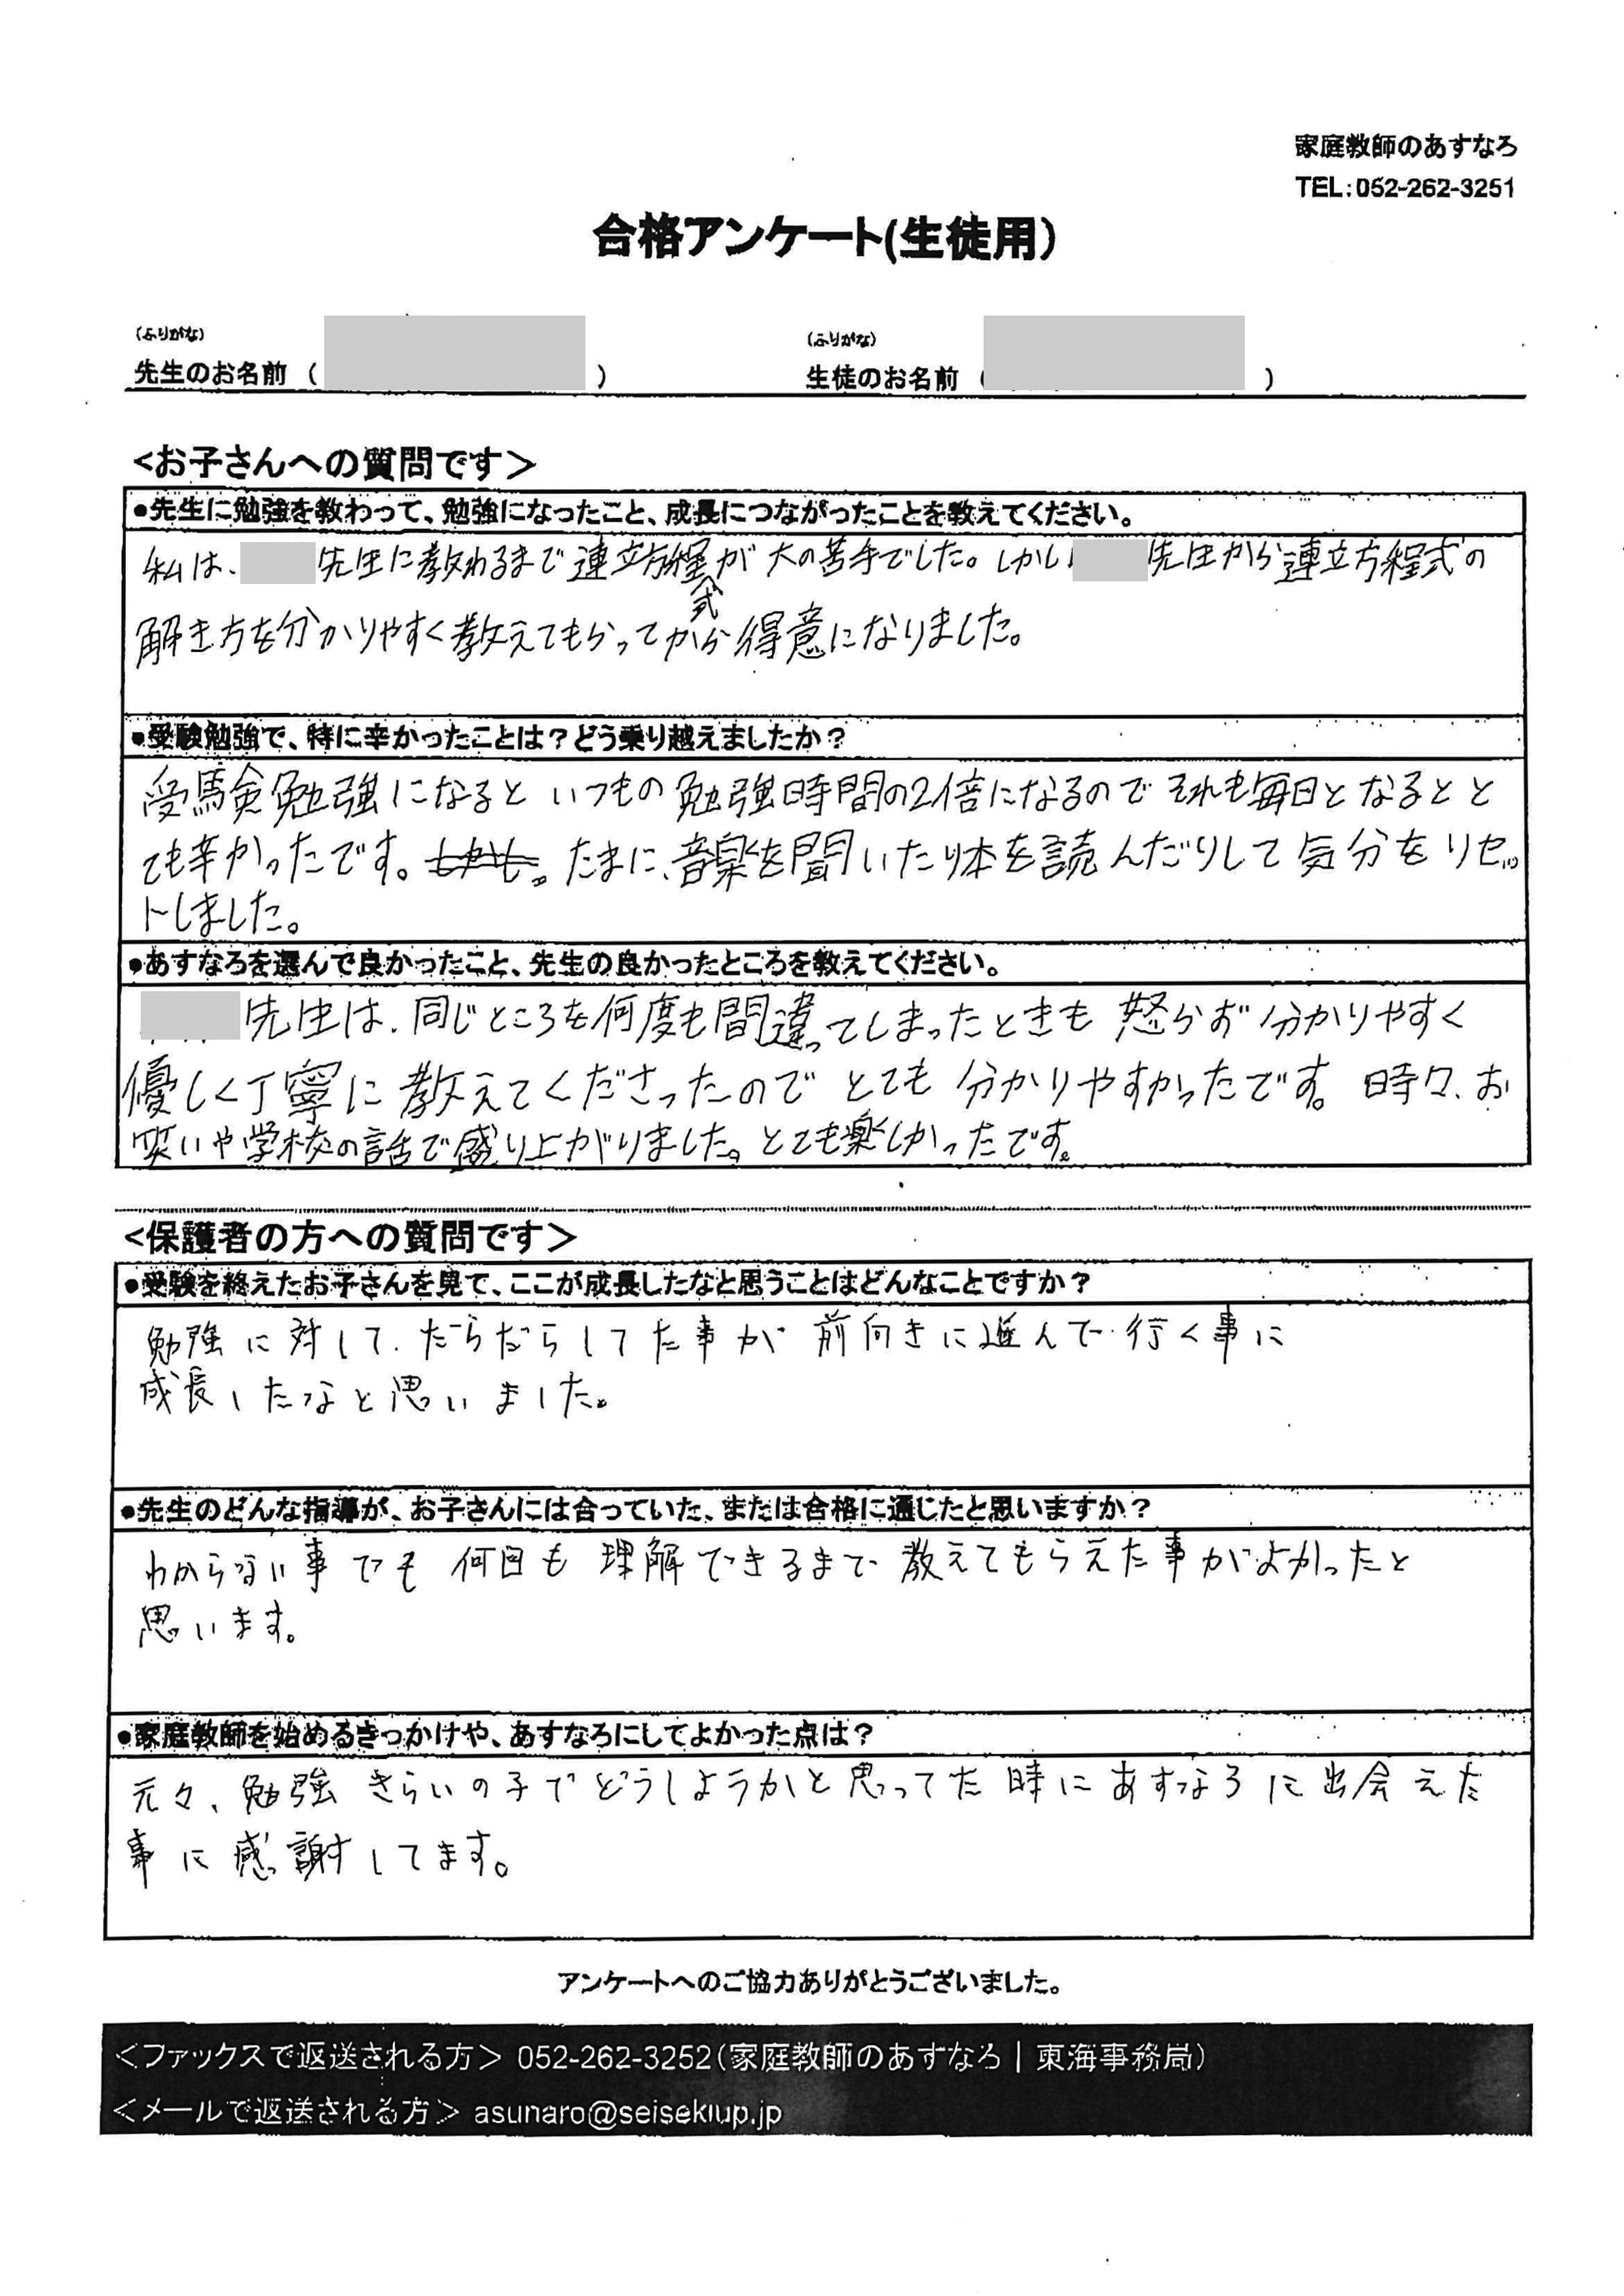 家庭教師のあすなろ
TEL:052-262-3251
合格アンケート(生徒用)
(ふりがな)
先生のお名前 ( )
(ふりがな)
生徒のお名前 ( )
<お子さんへの質問です>
●先生に勉強を教わって、勉強になったこと、成長につながったことを教えてください。
私は、 先生に教わるまで連立方程式が大の苦手でした。しかし 先生から連立方程式の
解き方を分かりやすく教えてもらってから得意になりました。
●受験勉強で、特に辛かったことは?どう乗り越えましたか?
受験勉強になるといつもの勉強時間の2倍になるのでそれも毎日となるとと
ても辛かったです。たまに、音楽を聞いたり本を読んだりして気分をリセッ
トしました。
●あすなろを選んで良かったこと、先生の良かったところを教えてください。
先生は、同じところを何度も間違ってしまったときも怒らず分かりやすく
優しく丁寧に教えてくださったのでとても分かりやすかったです。時々、お
笑いや学校の話で盛り上がりました。とても楽しかったです。
<保護者の方への質問です>
●受験を終えたお子さんを見て、ここが成長したなと思うことはどんなことですか?
勉強に対して、だらだらしてた事が前向きに進んで行く事に
成長したなと思いました。
●先生のどんな指導が、お子さんには合っていた、または合格に通じたと思いますか?
わからない事でも何回も理解できるまで教えてもらえた事がよかったと
思います。
●家庭教師を始めるきっかけや、あすなろにしてよかった点は?
元々、勉強きらいの子でどうしようかと思ってた時にあすなろに出会えた
事に感謝してます。
アンケートへのご協力ありがとうございました。
<ファックスで返送される方> 052-262-3252(家庭教師のあすなろ|東海事務局)
<メールで返送される方> asunaro@seisekiup.jp